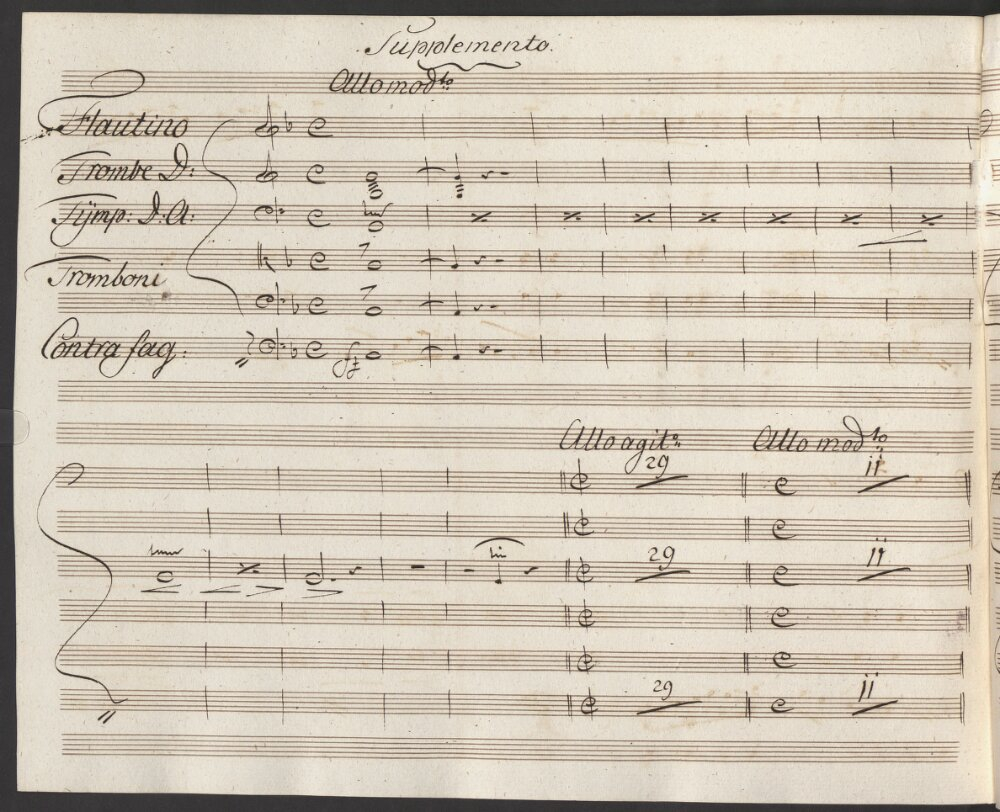 Supplemento.
Allo modto
Flautino
Trombe D:
Tÿmp: D: A:
Tromboni
Contra fag:
fz
Allo agito: Allo modto
29 11
29 11
29 11